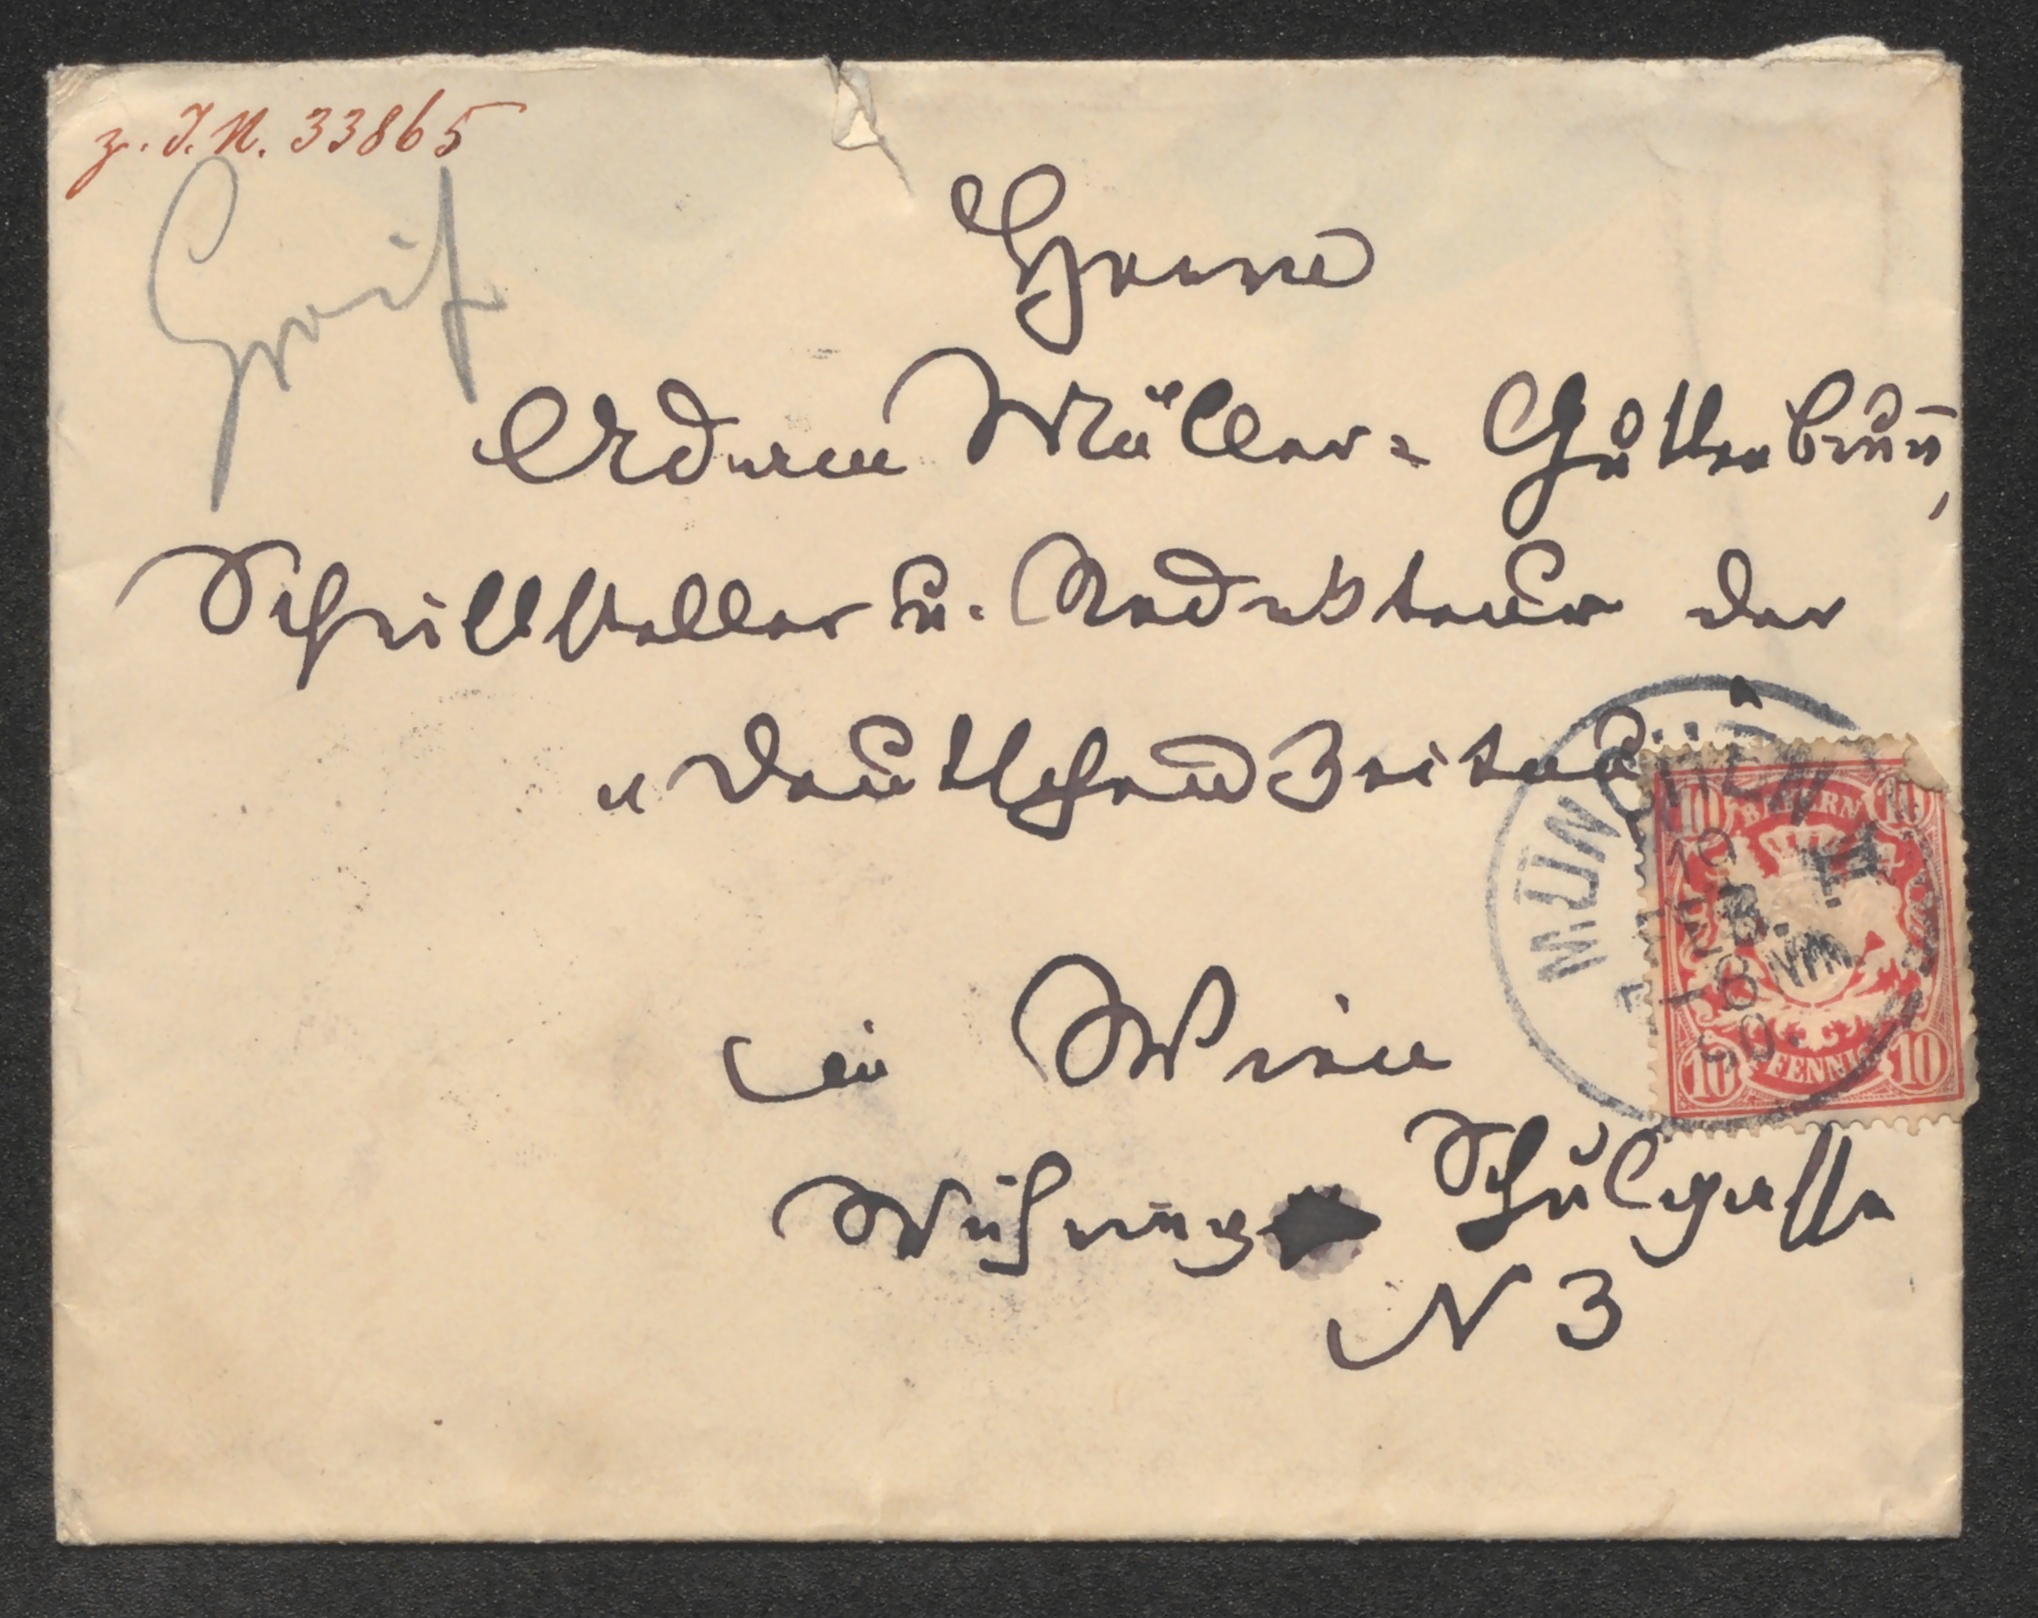 z. I.N. 33865
Greif
Herrn
Adam Müller-Guttenbrunn,
Schriftsteller u. Redakteur der
„Deutschen Zeitung
in Wien
Währing Schulgasse
N 3
MÜNCHEN
19
FEB.
VM.
90.
10 BAYERN 10
10 PFENNIG 10